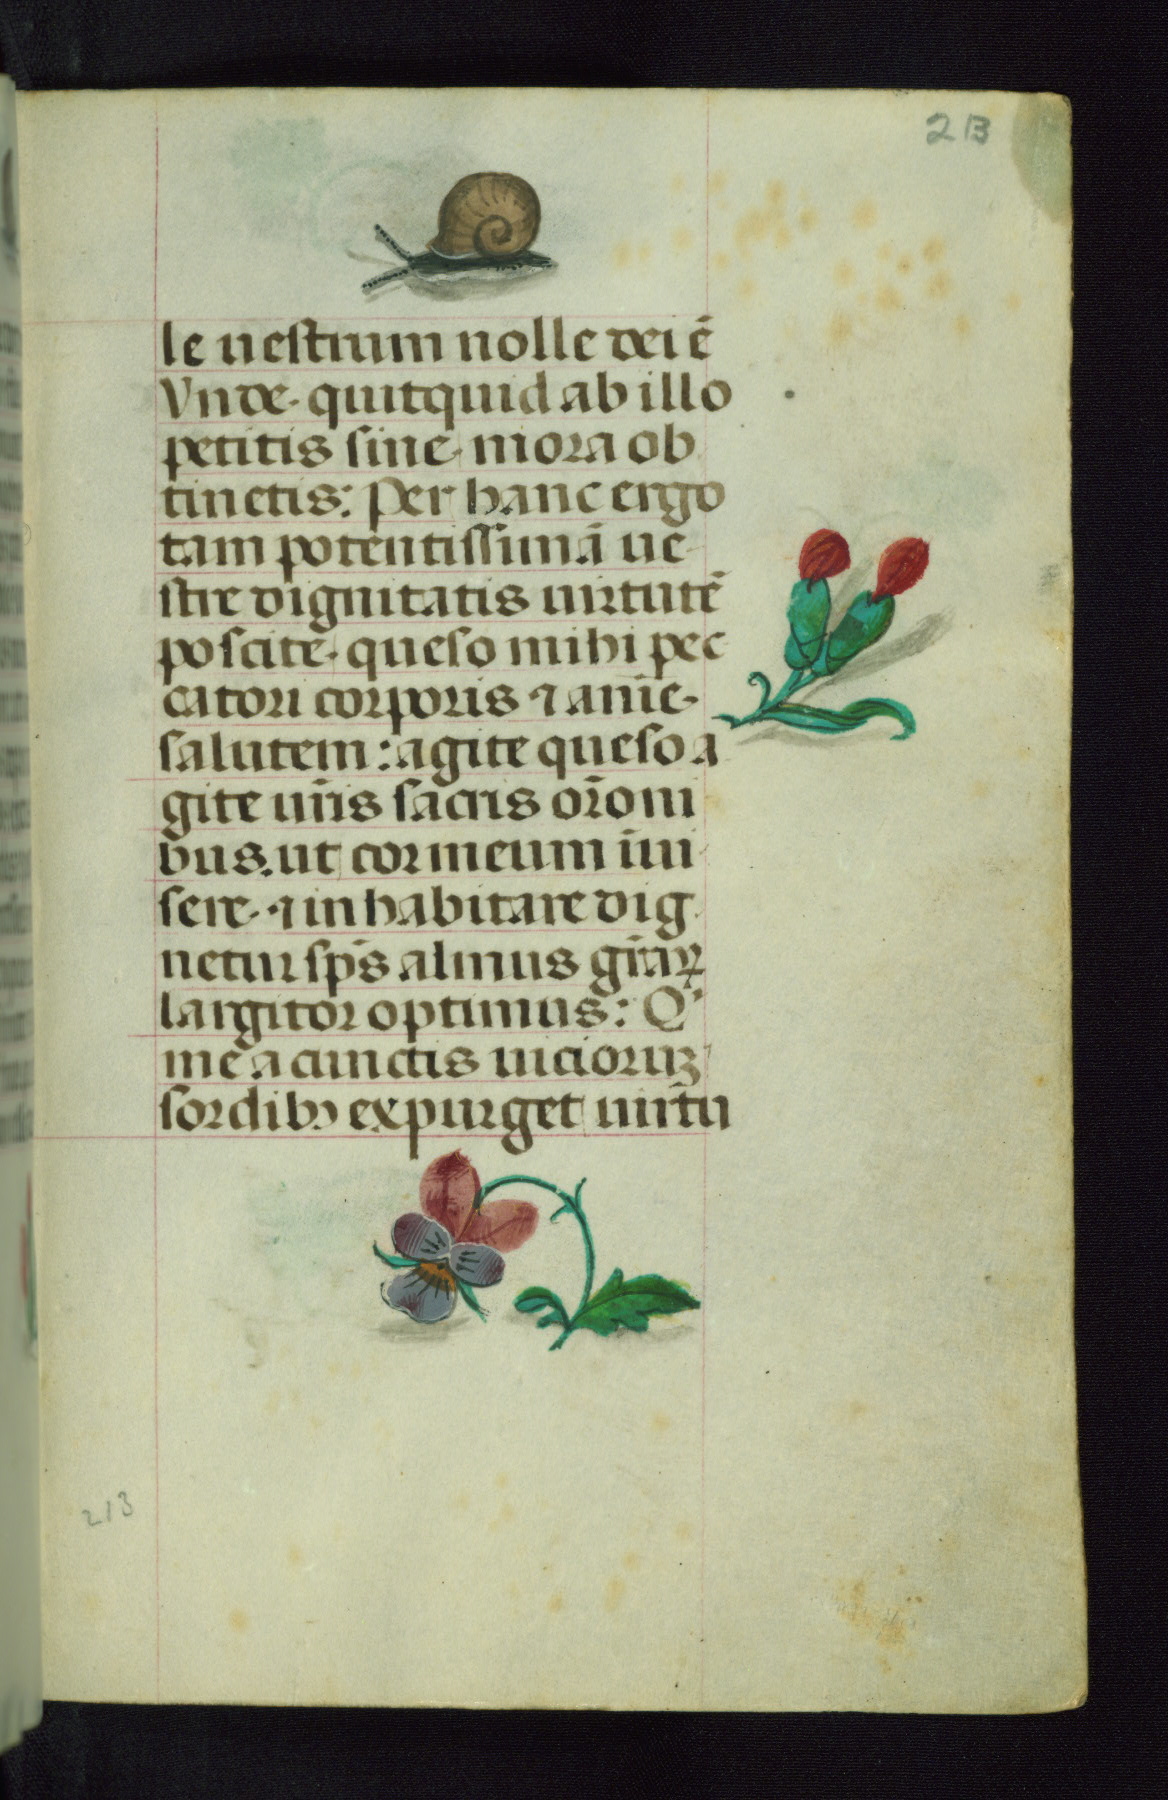 213
le uestrum nolle dei ē
Vnde quitquid ab illo
petitis sine mora ob
tinetis: Per hanc ergo
tam potentissimā ue
stre dignitatis uirtutē
poscite queso mihi pec
catori corporis ⁊ anīe
salutem: agite queso a
gite ur̄is sacris or̄oni
bus. ut cor meum īui
sere ⁊ inhabitare dig
netur sp̄s almus gr̄aꝝ
largitor optimus: Qⁱ
me a cunctis uicioruꝫ
sordibꝫ expurget uirtu
213